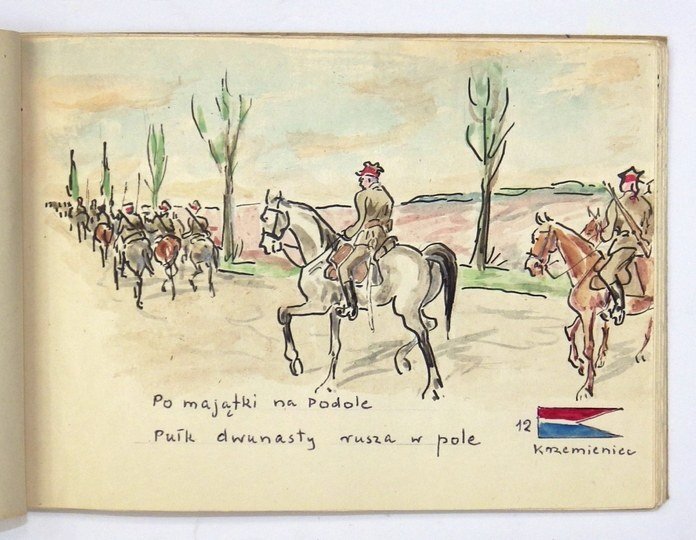 Po majątki na Podole
Pułk dwunasty rusza w pole
12
Krzemieniec